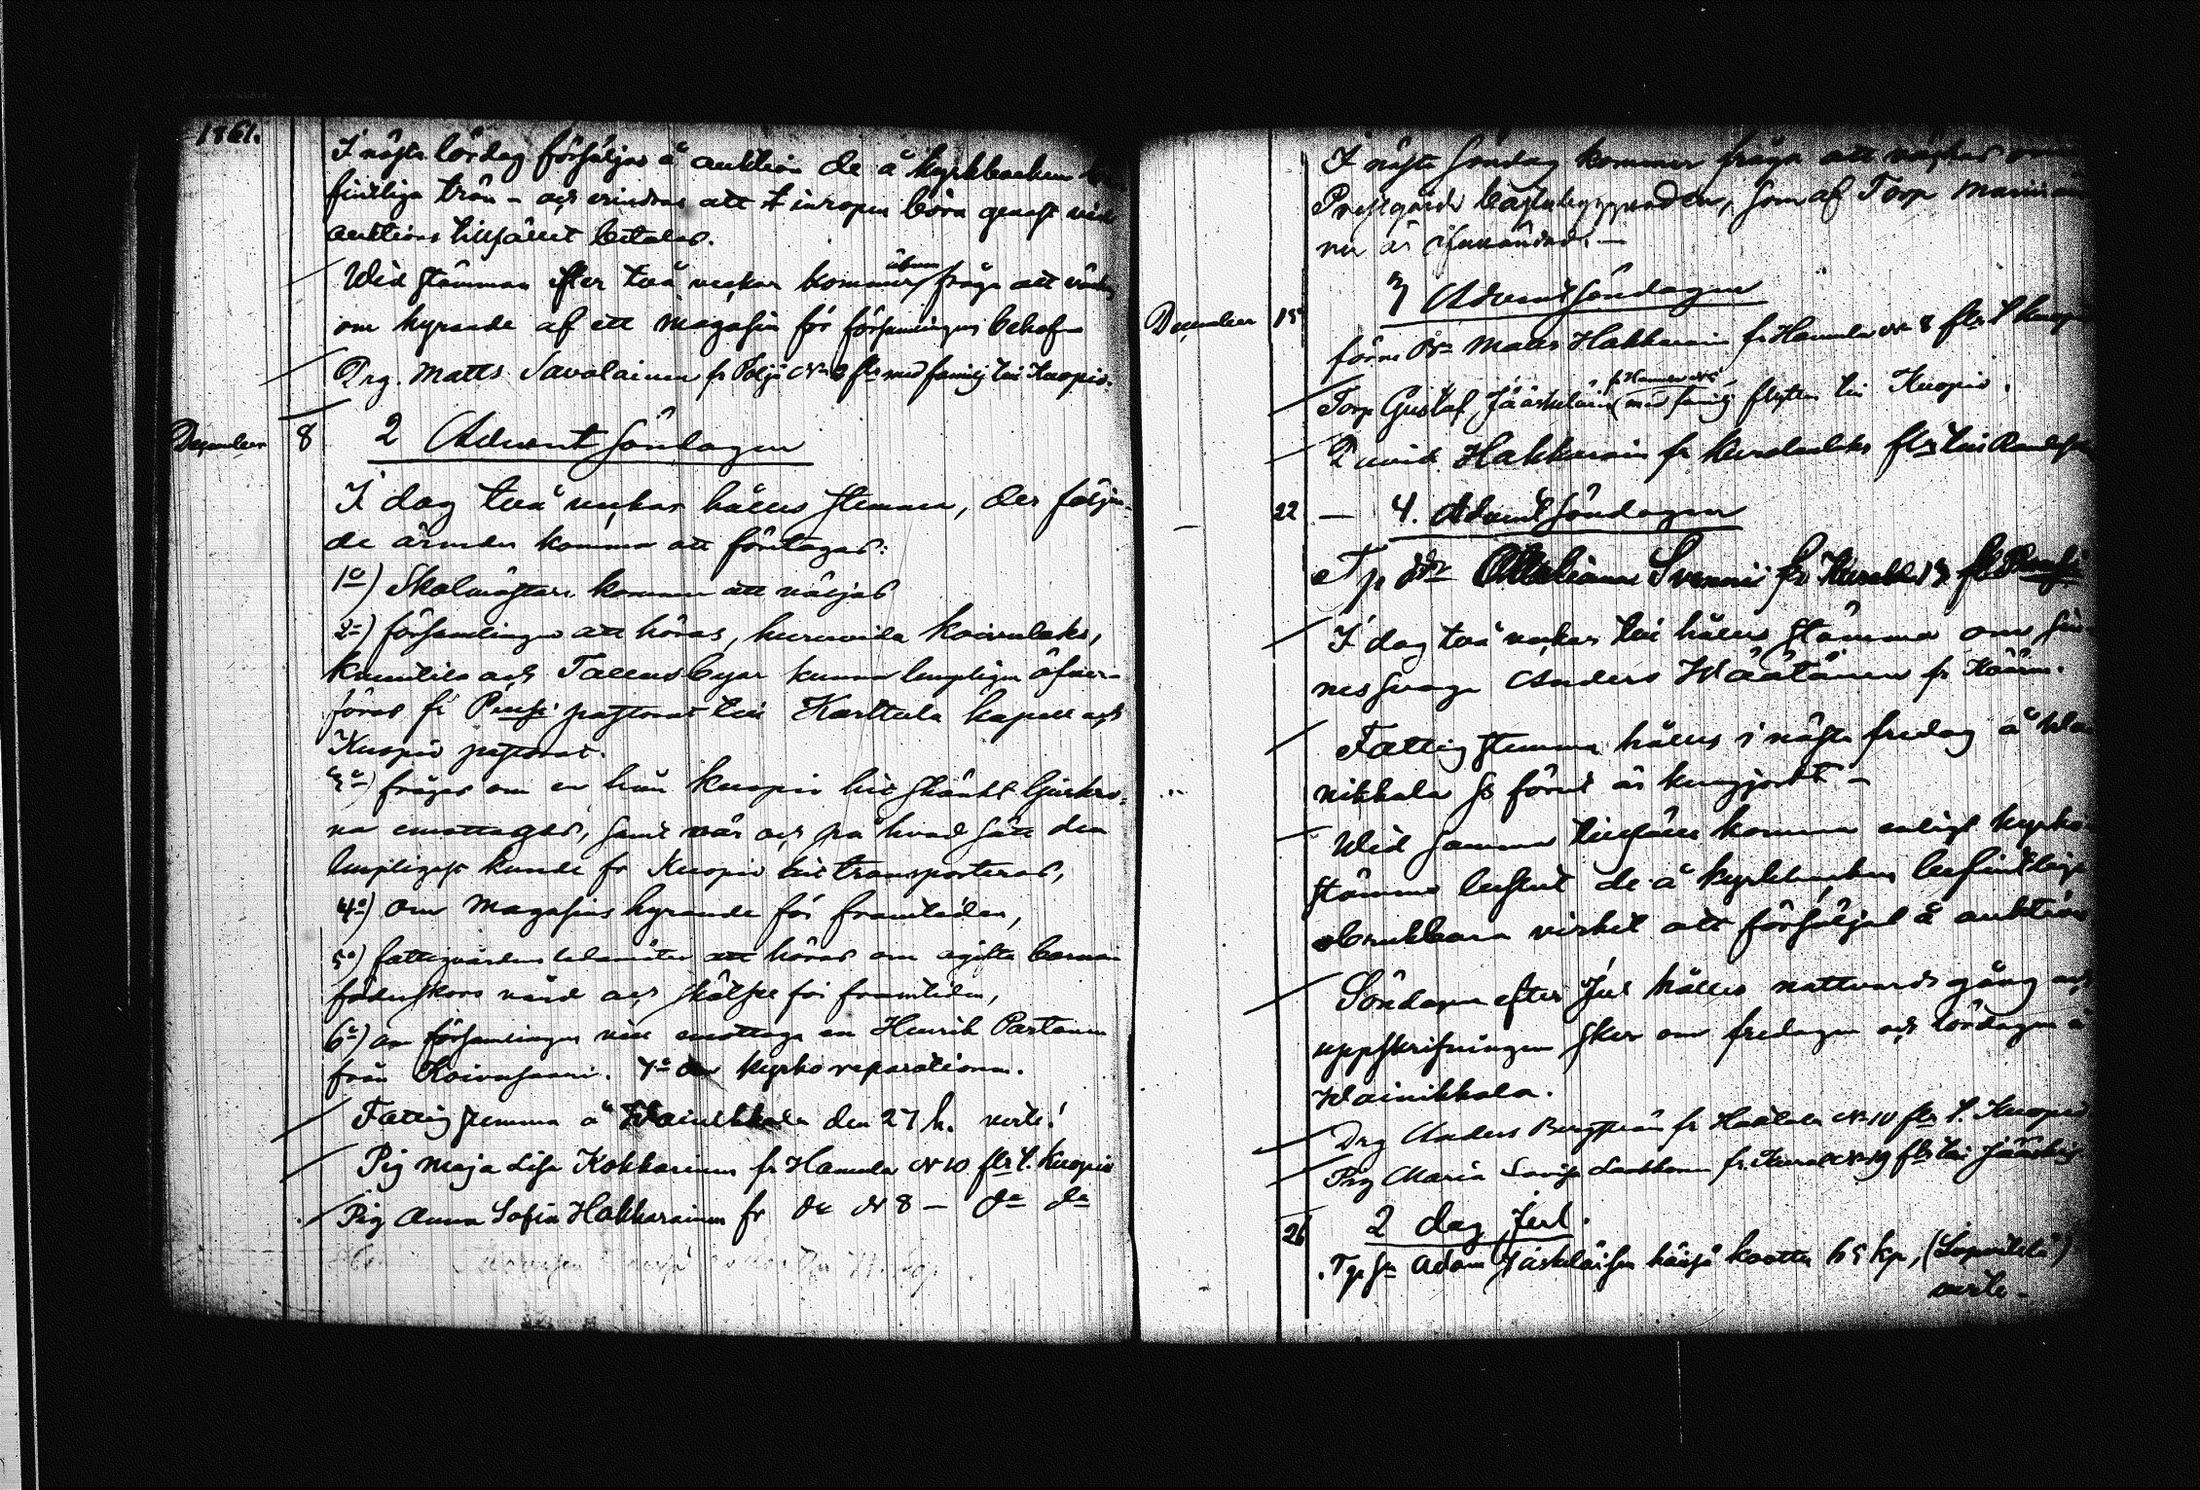 1861.
I nästa lördag försäljas å auktion de å kyrkbacken be
fintliga trän - och erindras att inropen böra genast vid
auktions tillfället betalas.
Wid stämman efter två veckor kommer äfven fråga att väckas
om hyrande af ett magasin för församlingens behof
Drg. Matts Savolainen fr Pöljä No 3 fltr med familj till Kuopio.
December 8 2 Advent Söndagen
I dag två veckor hålles stemma, der följan-
de ärender komma att företagas:
1o) Skolmästare kommer att väljas
2o) församlingen att höras, huruvida Koivulaks,
och Tallus byar kunna lämpligen öfver-
föras fr pastorat till Karttula kapell och
Kuopio pastorat.
3o) frågas om en från Kuopio hit skänkt ljuskro-
na emottages, samt när och på hvad sätt den
lämpligast kunde fr Kuopio hit transporteras,
4o) om Magasins hyrande för framtiden,
5o) fattigvårdens ledamöter att höras om ogifta barna
föderskors vård och skötsel för framtiden,
6o) om församlingen vill emottaga en Henrik Partanen
från Koivusaari. 7o Om kyrko reparationen.
Fattig stemma å Wainikkala den 27 h. verte!
Pig Maja Lisa Kokkarinen fr Hamula No 10 fltr t. Kuopio
Pig Anna Sofia Hakkarainen fr do No 8 - do do
I nästa söndag kommer fråga att väckas om
Prestgårds byggnaden, som af Torp
ner är
December 15 3 Advent Söndagen
förre Matts Hakkarain fr Hamula No 8 fltr t Kuopio
fr Hamula No
Torp Gustaf Jääskeläin med familj flytta till Kuopio.
David Hakkarain fr Kurolanlaks fltr till
22 - 4. Advent Söndagen
I dag två veckor till hålles stämma om
Anders Wäätäinen fr
Fattig stemma hålles i nästa fredag å Wai
nikkala som förut är kungjordt -
Wid samma tillfälle komma enligt kyrko
stämmo beslut de å kyrkbacken befintliga
obrukbara virket att försäljas å auktion
Söndagen efter Jul hålles nattvards gång och
uppskrifningen sker om fredagen och lördagen å
Wainikkala.
Drg Anders Bergman fr Haatala No 10 fltr t. Kuopio
Pig Maria Lovisa fr No 19 fltr till
26 2 dag Jul.
Adam Jääskeläisen häisä koottu 65 kp,
verte -